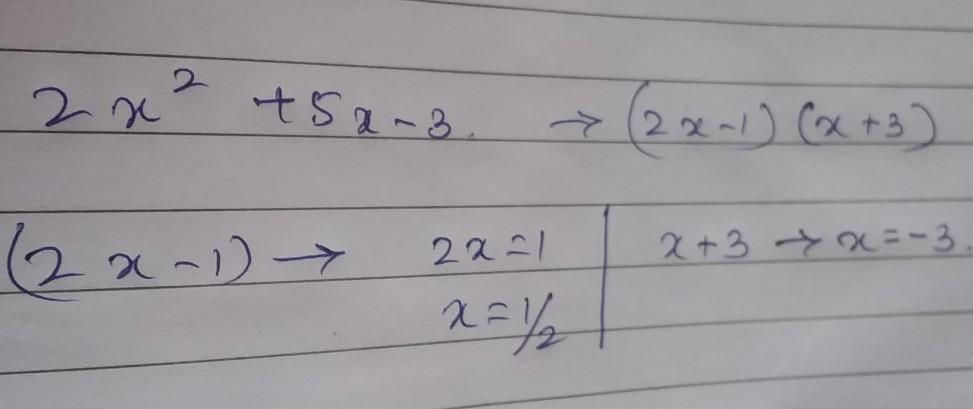 2x² + 5x - 3. → (2x-1) (x+3)
(2x-1) → 2x=1 | x+3 → x=-3.
x=1/2